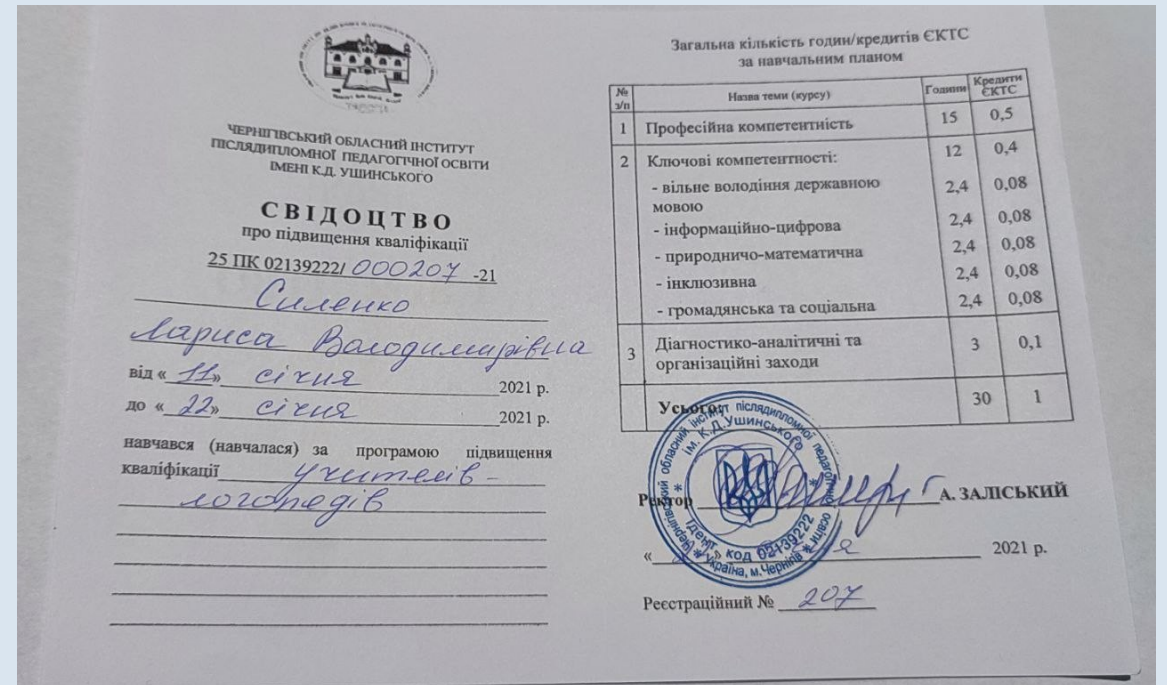 ЧЕРНІГІВСЬКИЙ ОБЛАСНИЙ ІНСТИТУТ
ПІСЛЯДИПЛОМНОЇ ПЕДАГОГІЧНОЇ ОСВІТИ
ІМЕНІ К.Д. УШИНСЬКОГО
СВІДОЦТВО
про підвищення кваліфікації
25 ПК 02139222/ 000207 -21
Силенко
Лариса Володимирівна
від « 11 » січня 2021 р.
до « 22 » січня 2021 р.
навчався (навчалася) за програмою підвищення
кваліфікації учителів -
логопедів
Загальна кількість годин/кредитів ЄКТС
за навчальним планом
№ з/п Назва теми (курсу) Години Кредити ЄКТС
1 Професійна компетентність 15 0,5
2 Ключові компетентності: 12 0,4
- вільне володіння державною
мовою 2,4 0,08
- інформаційно-цифрова 2,4 0,08
- природничо-математична 2,4 0,08
- інклюзивна 2,4 0,08
- громадянська та соціальна 2,4 0,08
3 Діагностико-аналітичні та
організаційні заходи 3 0,1
Усього: 30 1
Ректор А. ЗАЛІСЬКИЙ
« » 2021 р.
Реєстраційний № 207
Чернігівський обласний інститут післядипломної педагогічної освіти
ім. К.Д.Ушинського
Ідент. код 02139222
Україна, м.Чернігів